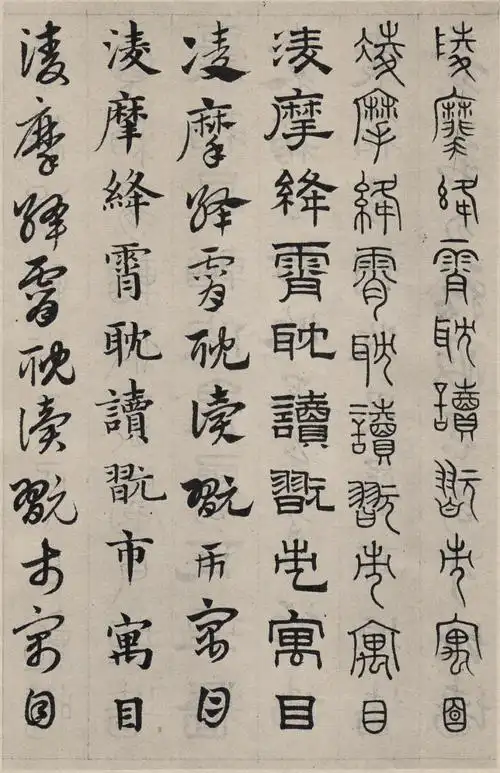 陵摩絳霄耽讀翫市寓目
凌摩絳霄耽讀翫市寓目
淩摩絳霄耽讀翫市寓目
凌摩絳霄耽讀翫市寓目
淩摩絳霄耽讀翫市寓目
淩摩絳霄耽讀翫市寓目